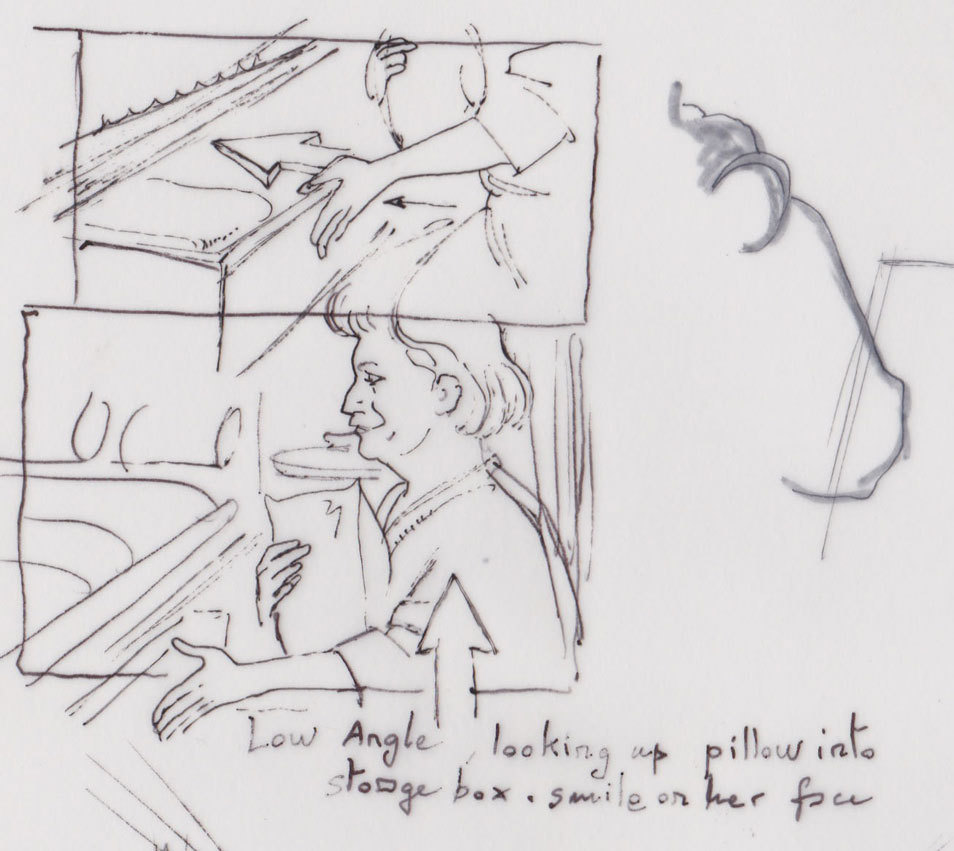 Low Angle, looking up pillow into
storage box. smile on her face